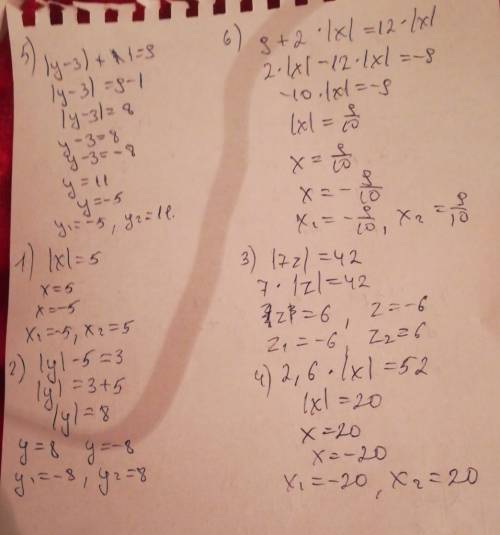 5) |y-3|+1=9
|y-3|=9-1
|y-3|=8
y-3=8
y-3=-8
y=11
y=-5
y₁=-5, y₂=11.
1) |x|=5
x=5
x=-5
x₁=-5, x₂=5
2) |y|-5=3
|y|=3+5
|y|=8
y=8 y=-8
y₁=-8, y₂=8
6) 9+2·|x|=12·|x|
2·|x|-12·|x|=-9
-10·|x|=-9
|x|=9/10
x=9/10
x=-9/10
x₁=-9/10, x₂=9/10
3) |7z|=42
7·|z|=42
|z|=6, z=-6
z₁=-6, z₂=6
4) 2,6·|x|=52
|x|=20
x=20
x=-20
x₁=-20, x₂=20